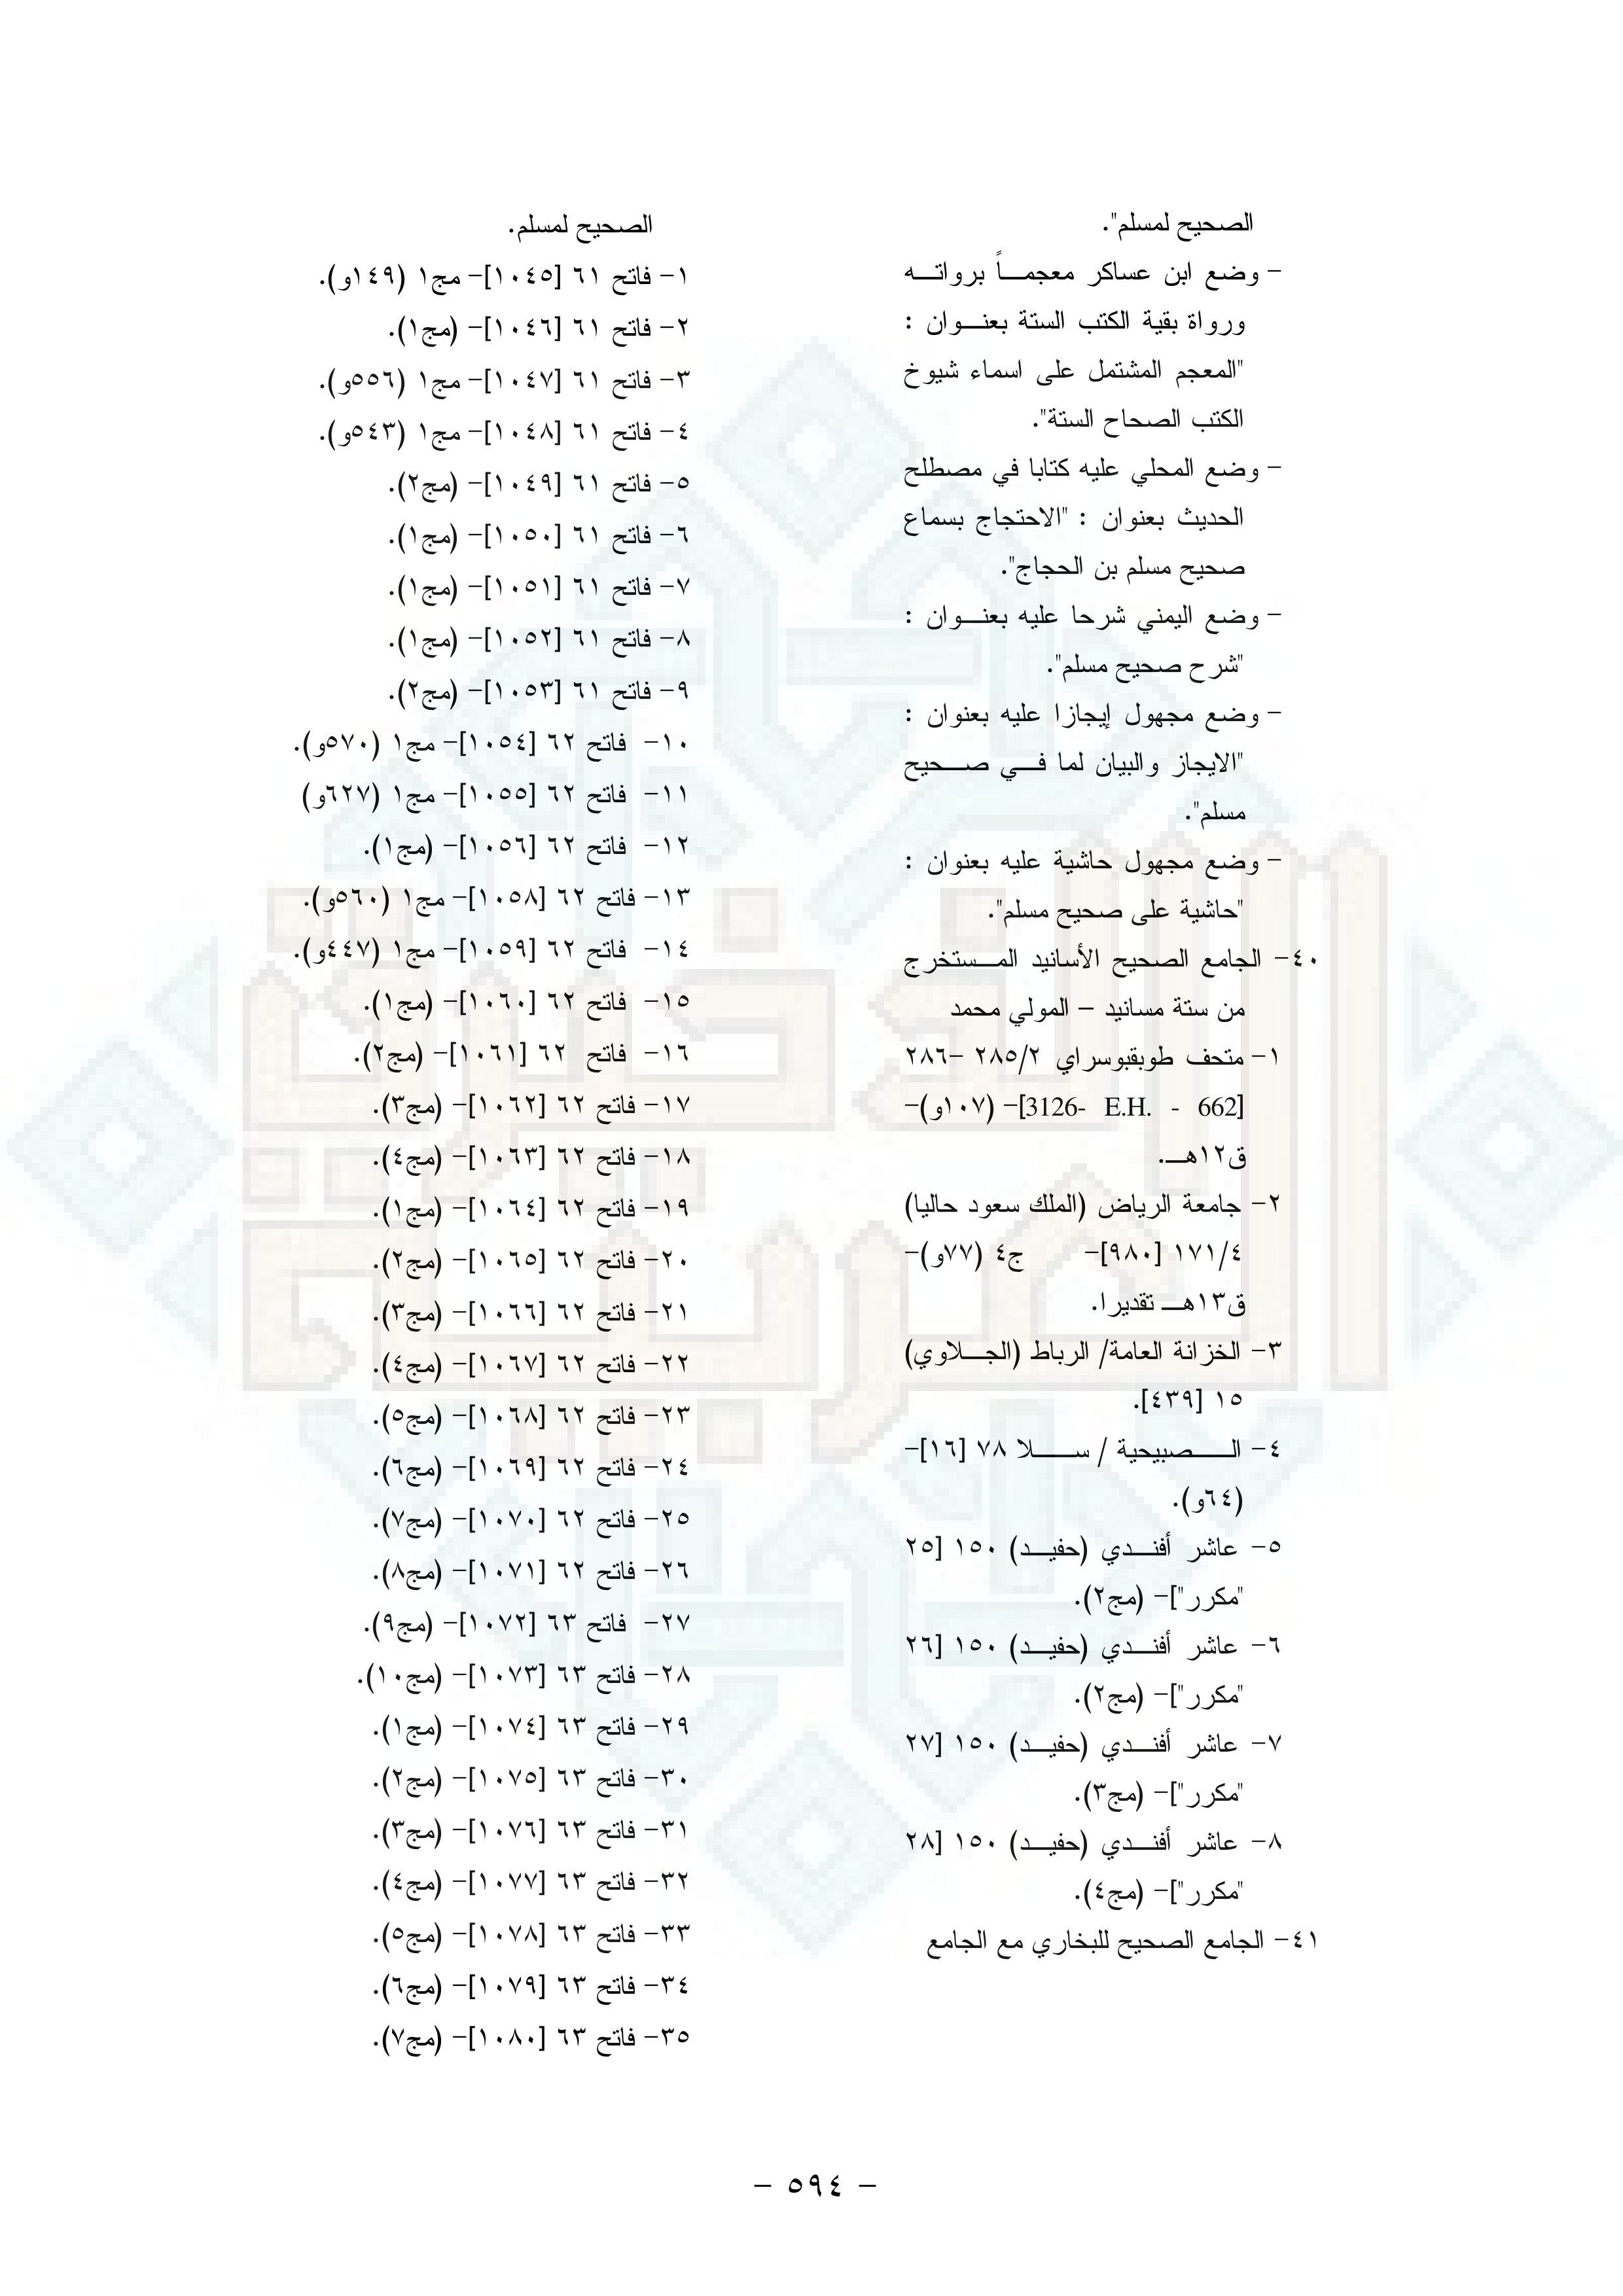 الصحيح لمسلم".
- وضع ابن عساكر معجمـــاً برواتـــه
ورواة بقية الكتب الستة بعنـــوان :
"المعجم المشتمل على اسماء شيوخ
الكتب الصحاح الستة".
- وضع المحلي عليه كتابا في مصطلح
الحديث بعنوان : "الاحتجاج بسماع
صحيح مسلم بن الحجاج".
- وضع اليمني شرحا عليه بعنـــوان :
"شرح صحيح مسلم".
- وضع مجهول إيجازا عليه بعنوان :
"الايجاز والبيان لما فـــي صـــحيح
مسلم".
- وضع مجهول حاشية عليه بعنوان :
"حاشية على صحيح مسلم".
٤٠- الجامع الصحيح الأسانيد المـــستخرج
من ستة مسانيد – المولي محمد
١- متحف طوبقبوسراي ٢٨٥/٢ -٢٨٦
[662 - E.H. -3126]- (١٠٧و)-
ق١٢هـــ.
٢- جامعة الرياض (الملك سعود حاليا)
١٧١/٤ [٩٨٠]- ج٤ (٧٧و)-
ق١٣هـــ تقديرا.
٣- الخزانة العامة/ الرباط (الجـــلاوي)
١٥ [٤٣٩].
٤- الـــــصبيحية / ســـــلا ٧٨ [١٦]-
(٦٤و).
٥- عاشر أفنـــدي (حفيـــد) ١٥٠ [٢٥
"مكرر"]- (مج٢).
٦- عاشر أفنـــدي (حفيـــد) ١٥٠ [٢٦
"مكرر"]- (مج٢).
٧- عاشر أفنـــدي (حفيـــد) ١٥٠ [٢٧
"مكرر"]- (مج٣).
٨- عاشر أفنـــدي (حفيـــد) ١٥٠ [٢٨
"مكرر"]- (مج٤).
٤١- الجامع الصحيح للبخاري مع الجامع
الصحيح لمسلم.
١- فاتح ٦١ [١٠٤٥]- مج١ (١٤٩و).
٢- فاتح ٦١ [١٠٤٦]- (مج١).
٣- فاتح ٦١ [١٠٤٧]- مج١ (٥٥٦و).
٤- فاتح ٦١ [١٠٤٨]- مج١ (٥٤٣و).
٥- فاتح ٦١ [١٠٤٩]- (مج٢).
٦- فاتح ٦١ [١٠٥٠]- (مج١).
٧- فاتح ٦١ [١٠٥١]- (مج١).
٨- فاتح ٦١ [١٠٥٢]- (مج١).
٩- فاتح ٦١ [١٠٥٣]- (مج٢).
١٠- فاتح ٦٢ [١٠٥٤]- مج١ (٥٧٠و).
١١- فاتح ٦٢ [١٠٥٥]- مج١ (٦٢٧و)
١٢- فاتح ٦٢ [١٠٥٦]- (مج١).
١٣- فاتح ٦٢ [١٠٥٨]- مج١ (٥٦٠و).
١٤- فاتح ٦٢ [١٠٥٩]- مج١ (٤٤٧و).
١٥- فاتح ٦٢ [١٠٦٠]- (مج١).
١٦- فاتح ٦٢ [١٠٦١]- (مج٢).
١٧- فاتح ٦٢ [١٠٦٢]- (مج٣).
١٨- فاتح ٦٢ [١٠٦٣]- (مج٤).
١٩- فاتح ٦٢ [١٠٦٤]- (مج١).
٢٠- فاتح ٦٢ [١٠٦٥]- (مج٢).
٢١- فاتح ٦٢ [١٠٦٦]- (مج٣).
٢٢- فاتح ٦٢ [١٠٦٧]- (مج٤).
٢٣- فاتح ٦٢ [١٠٦٨]- (مج٥).
٢٤- فاتح ٦٢ [١٠٦٩]- (مج٦).
٢٥- فاتح ٦٢ [١٠٧٠]- (مج٧).
٢٦- فاتح ٦٢ [١٠٧١]- (مج٨).
٢٧- فاتح ٦٣ [١٠٧٢]- (مج٩).
٢٨- فاتح ٦٣ [١٠٧٣]- (مج١٠).
٢٩- فاتح ٦٣ [١٠٧٤]- (مج١).
٣٠- فاتح ٦٣ [١٠٧٥]- (مج٢).
٣١- فاتح ٦٣ [١٠٧٦]- (مج٣).
٣٢- فاتح ٦٣ [١٠٧٧]- (مج٤).
٣٣- فاتح ٦٣ [١٠٧٨]- (مج٥).
٣٤- فاتح ٦٣ [١٠٧٩]- (مج٦).
٣٥- فاتح ٦٣ [١٠٨٠]- (مج٧).
- ٥٩٤ -